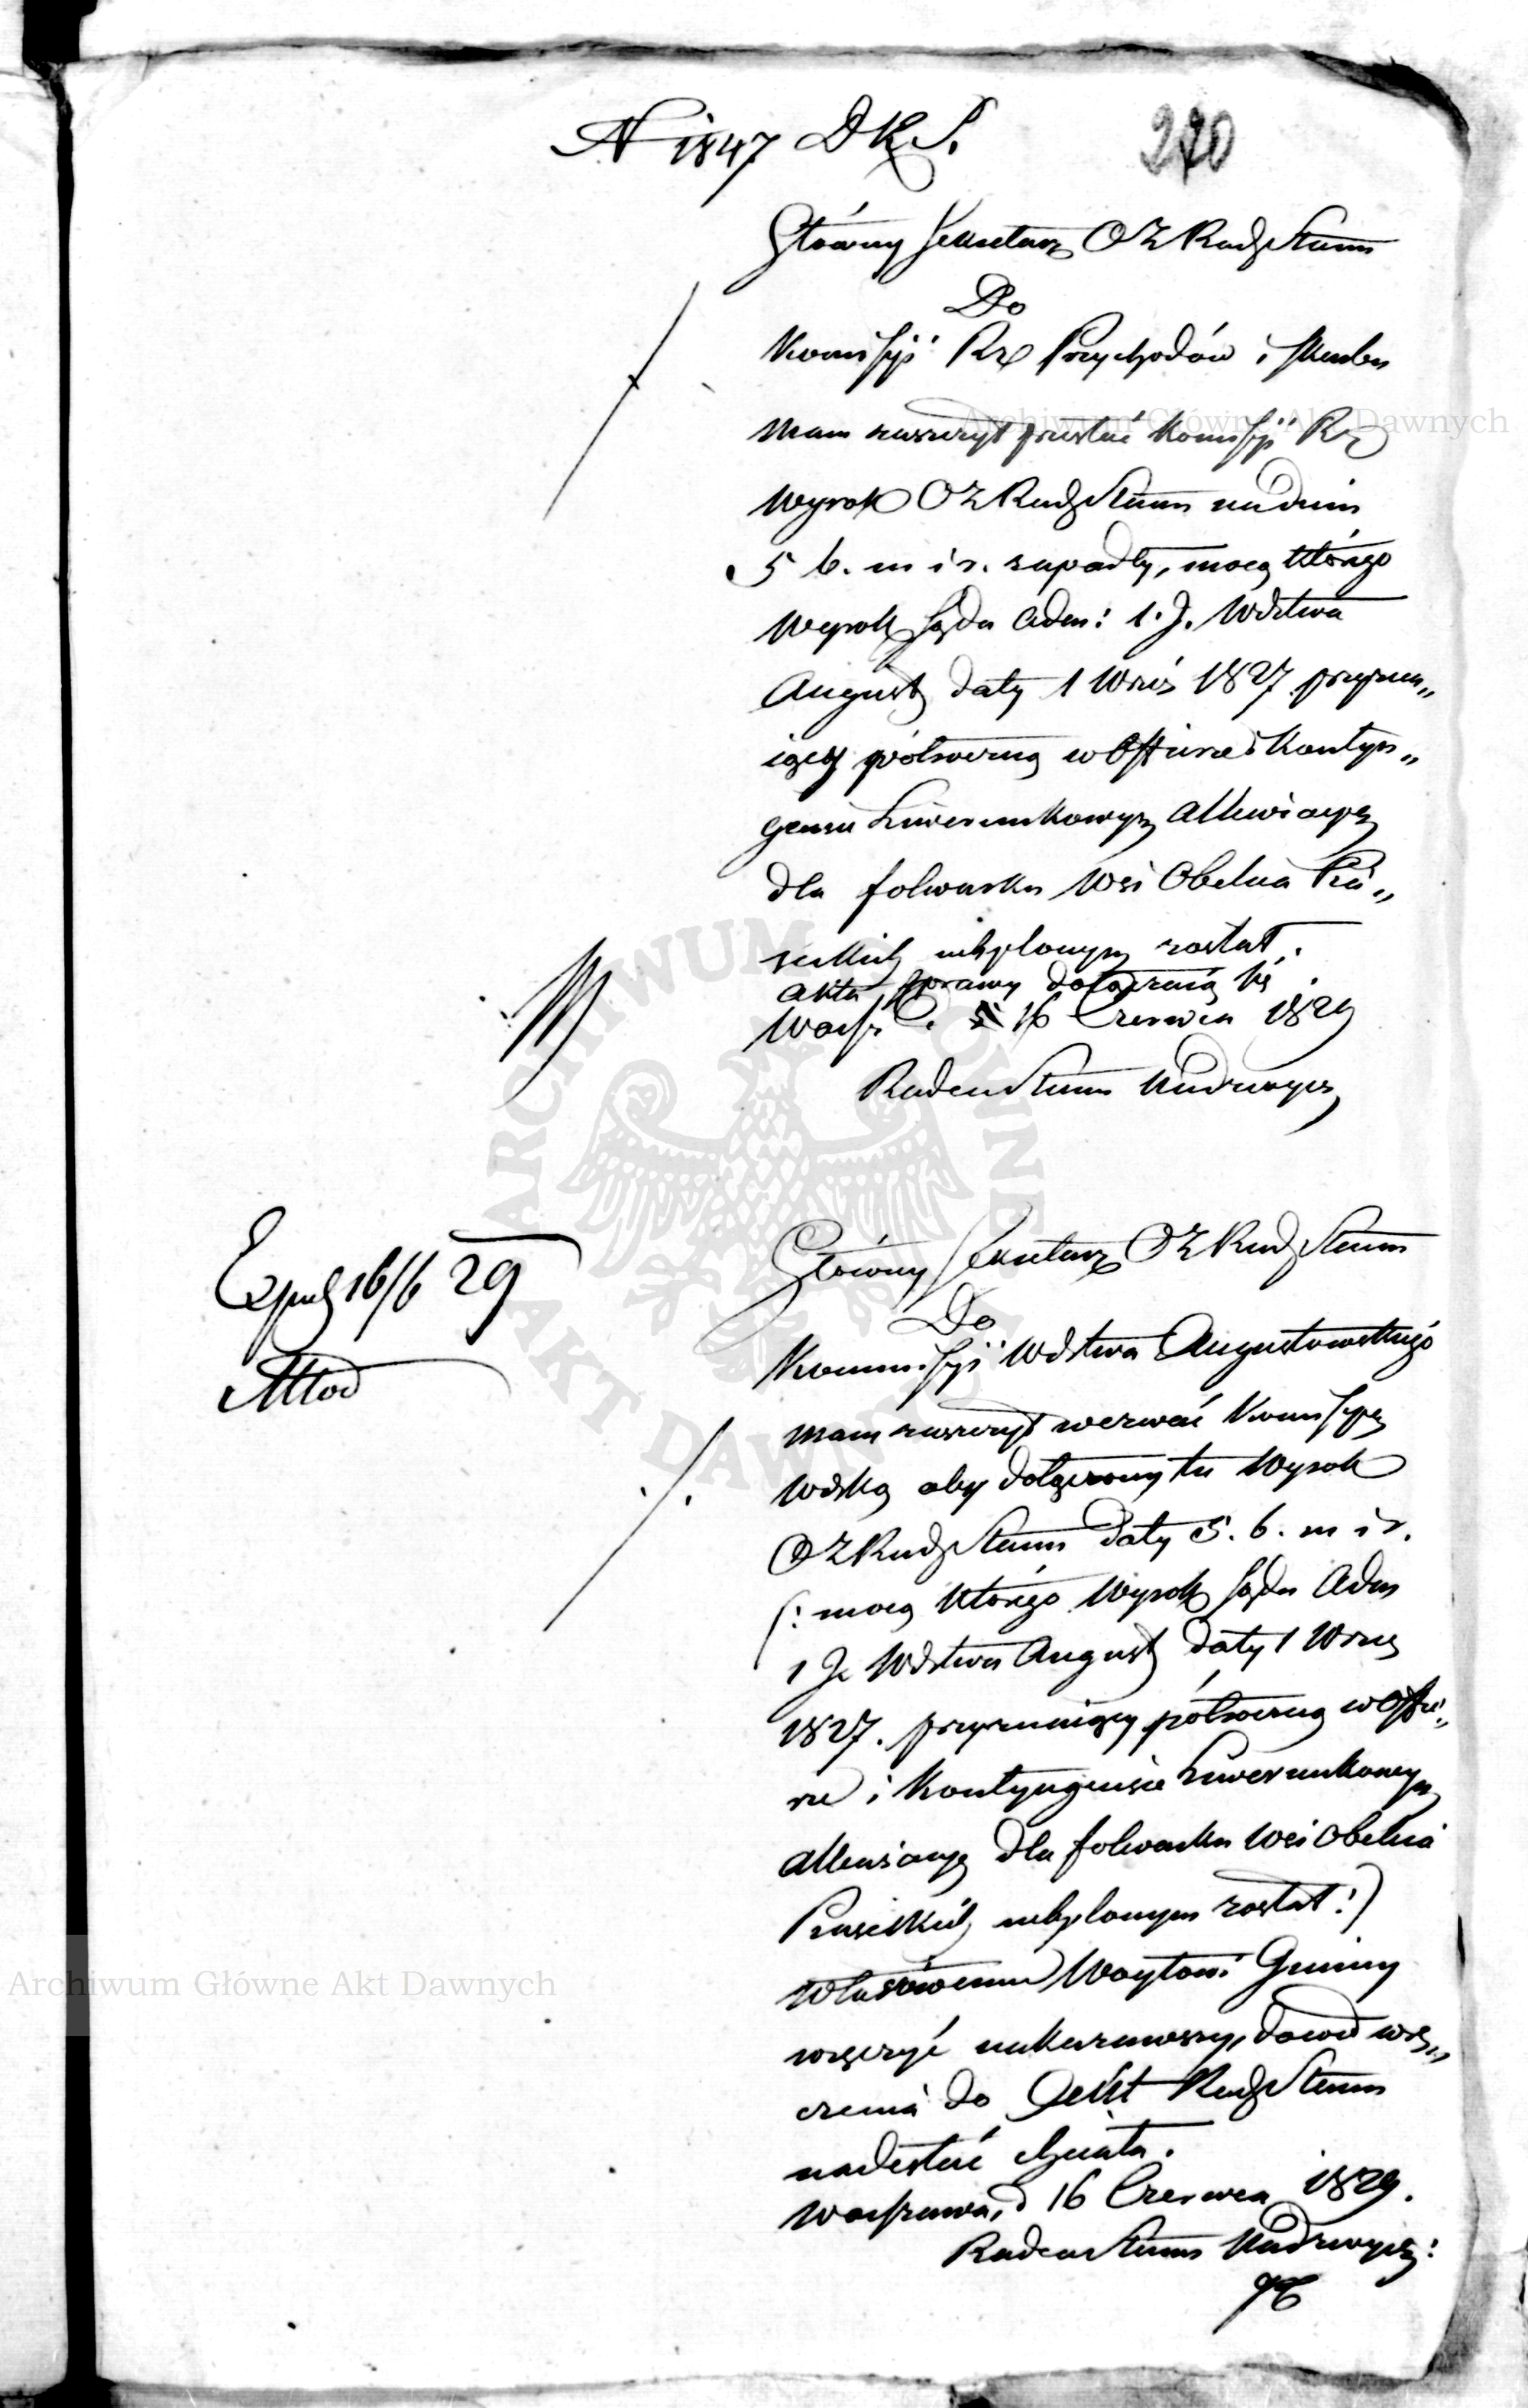 N 1847 D K S.
270
Główny Sekretarz O Z Rady Stanu
Do
Kommissyi Rz Przychodów i Skarbu
Mam zaszczyt przesłać Komissyi Rz
Wyrok O Z Rady Stanu na dniu
5 b. m i r. zapadły, mocą którego
Wyrok Sądu Adm: 1. J. Wdztwa
August daty 1 Wrześ 1827 przyzna„
iący półroczną w Offiarze i Kontyn„
gensie Liwerunkowym allewiacyą
dla folwarku Wsi Obelua
uchylonym został.
Akta sprawy dołączaią się
Warsz d. 16 Czerwca 1829
Radca Stanu Nadzwyczy
Exped 16/6 29
Główny Sekretarz O Z Rady Stanu
Do
Kommissyi Wdztwa Augustowskiego
Mam zaszczyt wezwać Komissyą
Wdzką aby dołączony tu Wyrok
O Z Rady Stanu daty 5. b. m i r.
(: mocą którego Wyrok Sądu Adm
1 J. Wdztwa August daty 1 Wrześ
1827. przyznaiący półroczną w Offia„
rze i Kontyngensie Liwerunkowym
allewiacyą dla folwarku Wsi Obelua
uchylonym został :)
Właściwemu Woytowi Gminy
wręczyć nakazawszy, dowód wrę„
czenia do Rady Stanu
nadesłać chciała.
Warszawa, d 16 Czerwca 1829.
Radca Stanu Nadzwycz:
Archiwum Główne Akt Dawnych
Archiwum Główne Akt Dawnych
ARCHIWUM GŁÓWNE AKT DAWNYCH